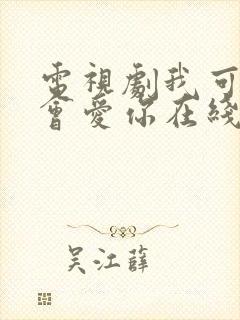 電視劇我可
會愛你在綫
吴江薛